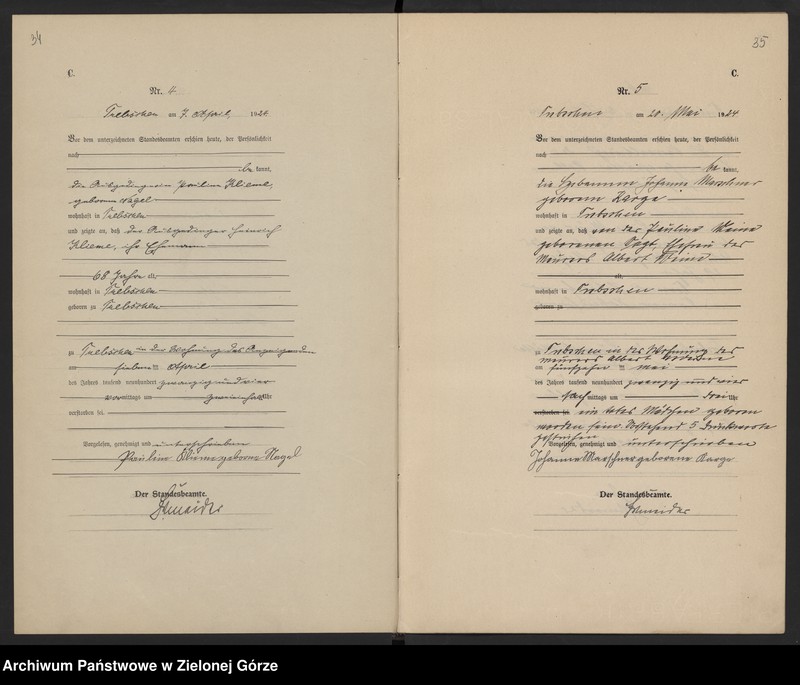 34
C.
Nr. 4
am 7. April 1924
Vor dem unterzeichneten Standesbeamten erschien heute, der Persönlichkeit
nach
be kannt,
die Pauline Klieme,
geborene Nagel
wohnhaft in
und zeigte an, daß der Heinrich
Klieme, ihr Ehemann
68 Jahre alt,
wohnhaft in
geboren zu
zu in der Wohnung des Anzeigenden
am sieben ten April
des Jahres tausend neunhundert zwanzig und vier
vor mittags um Uhr
verstorben sei.
Vorgelesen, genehmigt und unterschrieben
Pauline Klieme geborene Nagel
Der Standesbeamte.
Schneider
35
C.
Nr. 5
am 20. Mai 1924
Vor dem unterzeichneten Standesbeamten erschien heute, der Persönlichkeit
nach
be kannt,
die Hebamme Johanna Marschner
geborene Karge
wohnhaft in
und zeigte an, daß von der Pauline
geborenen Vogt, Ehefrau des
Maurers Albert
alt,
wohnhaft in
geboren zu
zu in der Wohnung des
Maurers Albert
am fünfzehn ten Mai
des Jahres tausend neunhundert zwanzig und vier
Nach mittags um drei Uhr
verstorben sei. ein totes Mädchen geboren
worden sei. Vorstehend 5 Druckworte
gestrichen
Vorgelesen, genehmigt und unterschrieben
Johanna Marschner geborene Karge
Der Standesbeamte.
Schneider
Archiwum Państwowe w Zielonej Górze